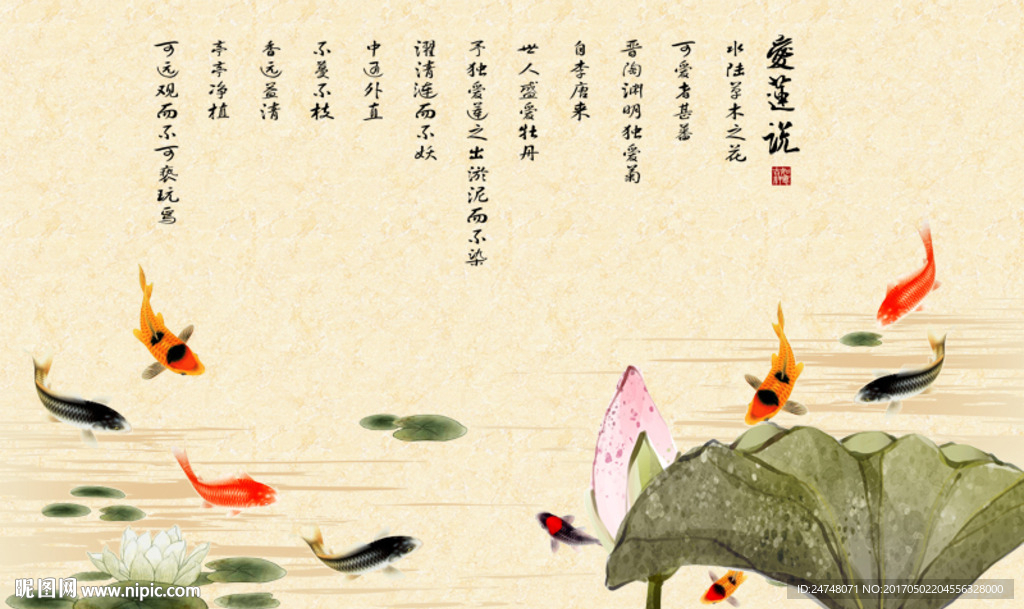 爱莲说
水陆草木之花
可爱者甚蕃
晋陶渊明独爱菊
自李唐来
世人盛爱牡丹
予独爱莲之出淤泥而不染
濯清涟而不妖
中通外直
不蔓不枝
香远益清
亭亭净植
可远观而不可亵玩焉
昵图网 www.nipic.com
ID:24748071 NO:20170502204556328000